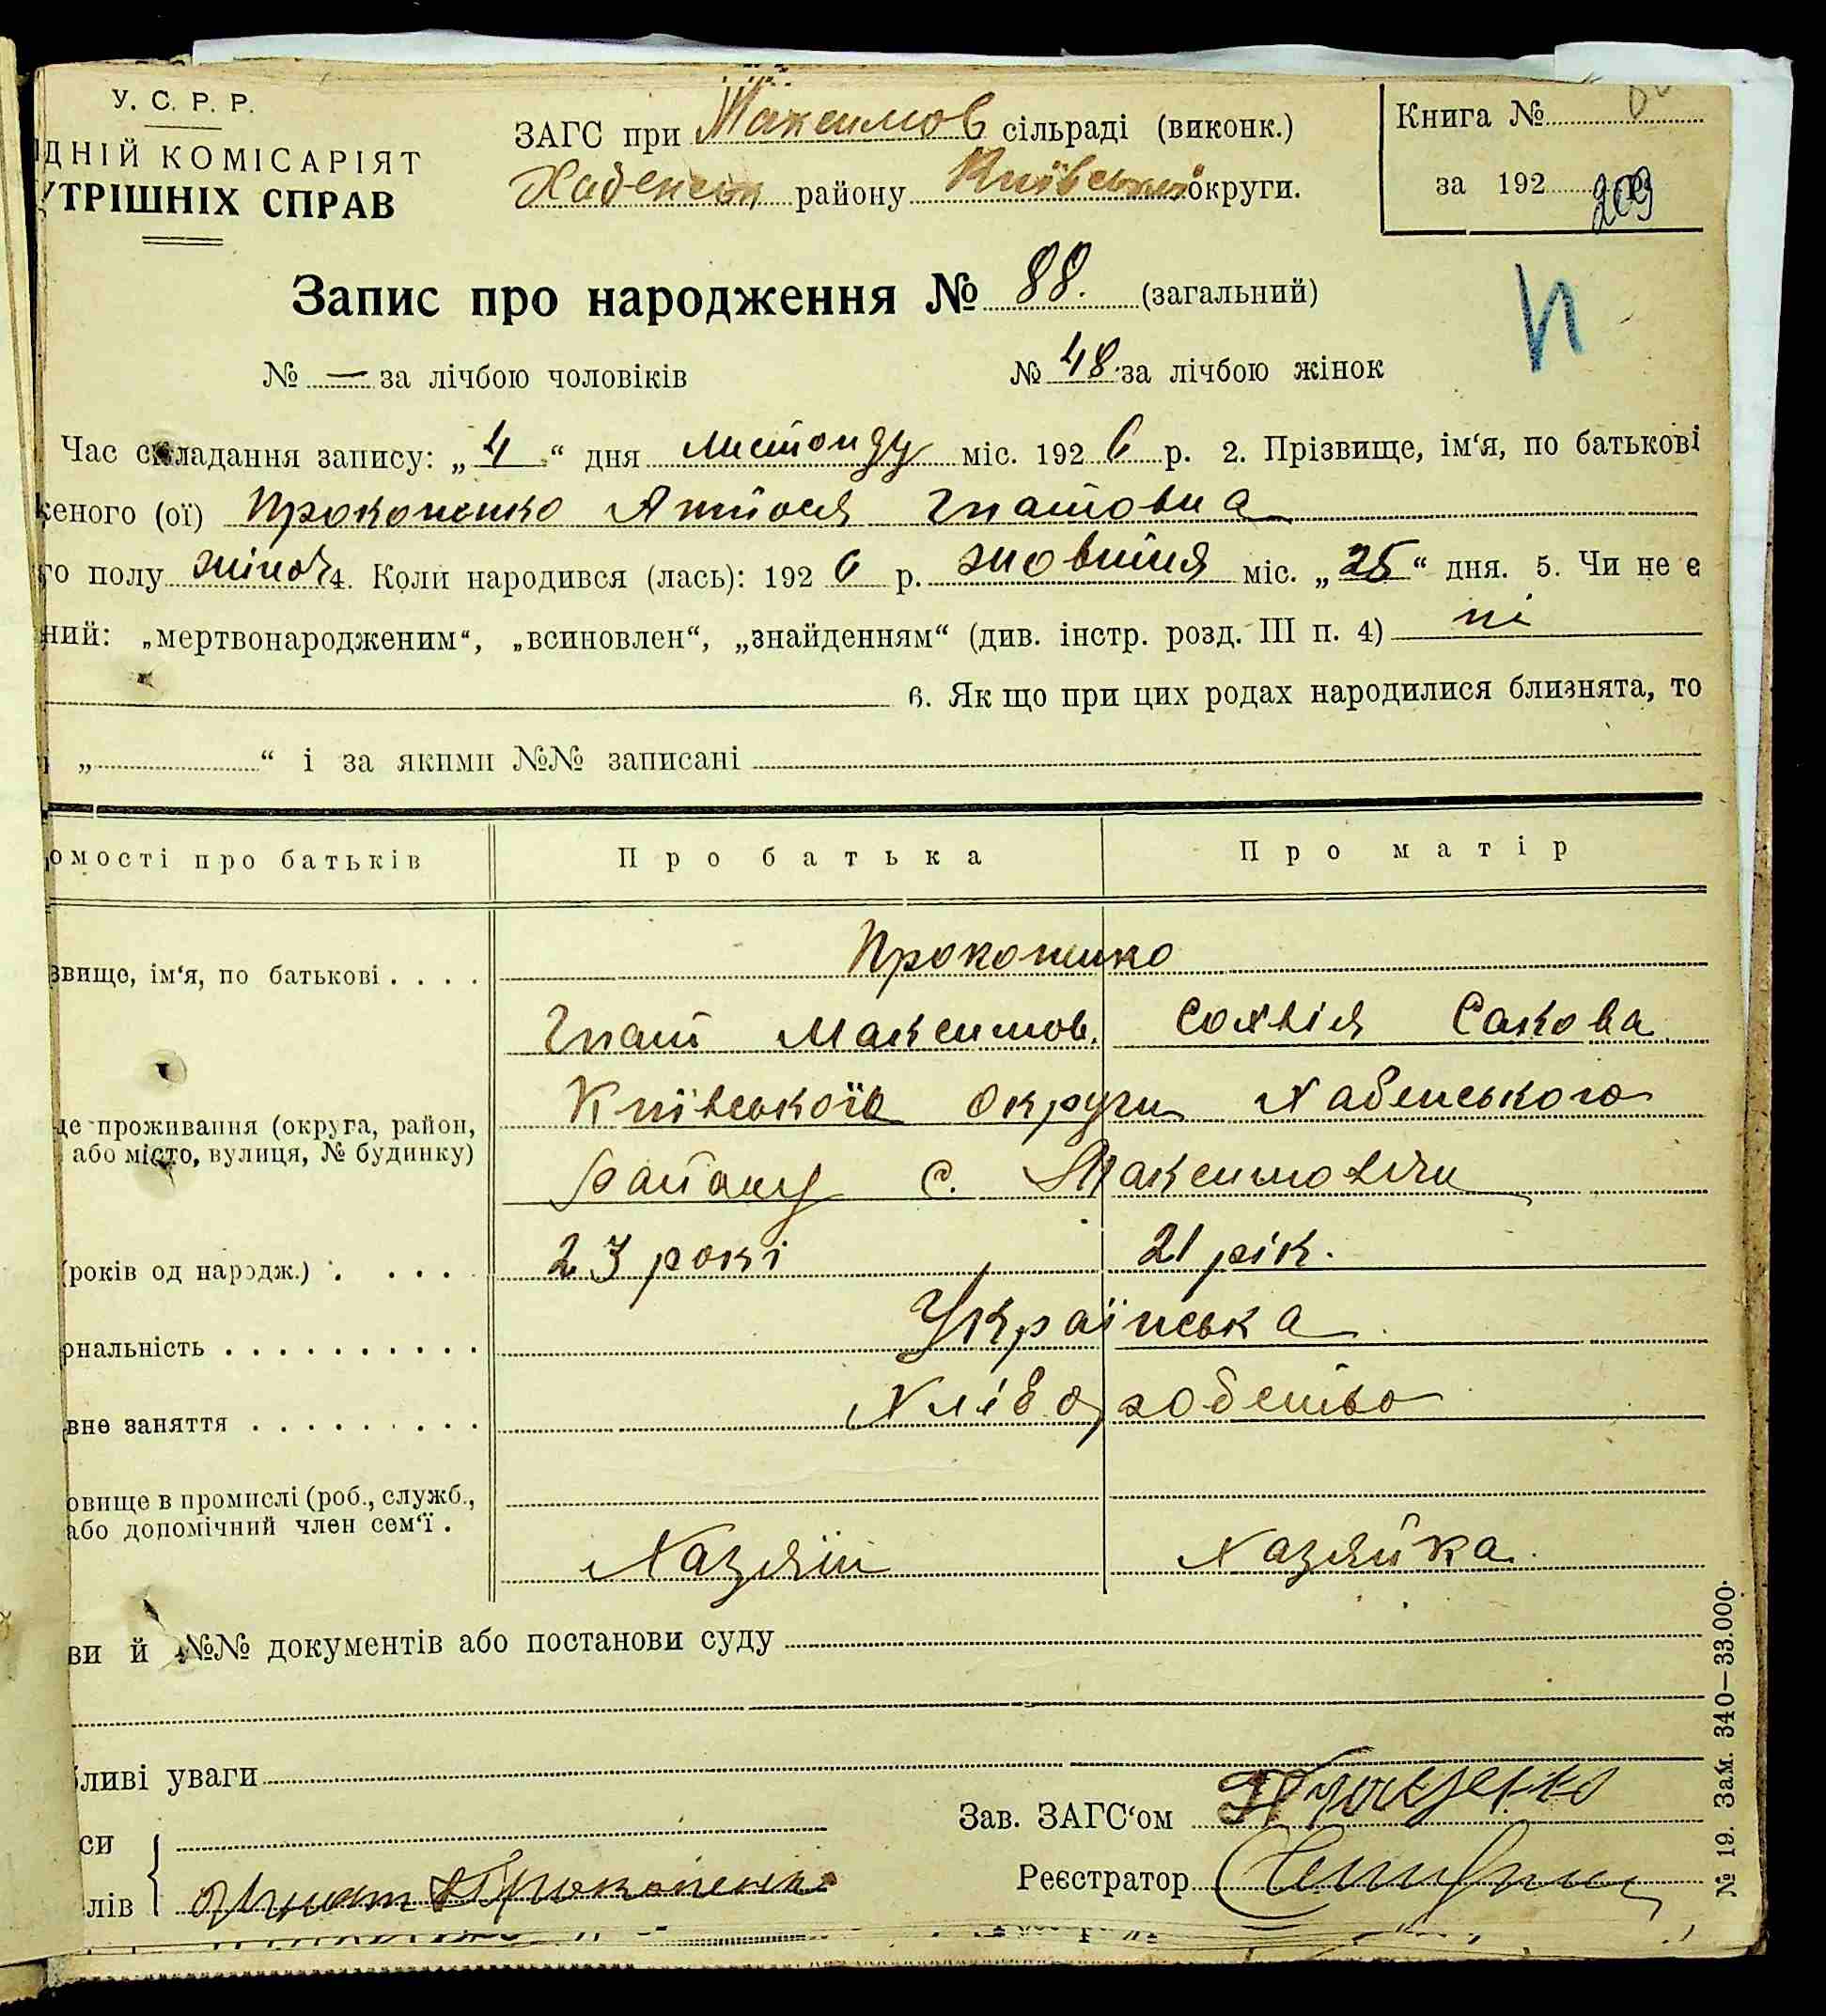 У. С. Р. Р.
ДНІЙ КОМІСАРІЯТ
УТРІШНІХ СПРАВ
ЗАГС при Максимов сільраді (виконк.)
Хабенськ району Київської округи.
Книга №
за 192 р.
209
Запис про народження № 88. (загальний)
№ — за лічбою чоловіків
№ 48 за лічбою жінок
Час складання запису: „4“ дня листопаду міс. 1926 р. 2. Прізвище, ім‘я, по батькові
женого (ої) Прокопенко Антося Гнатовна
го полу жіноч 4. Коли народився (лась): 1926 р. жовтня міс. „25“ дня. 5. Чи не є
ний: „мертвонародженим“, „всиновлен“, „знайденням“ (див. інстр. розд. III п. 4) ні
6. Як що при цих родах народилися близнята, то
„ “ і за якими №№ записані
омості про батьків
Про батька
Про матір
звище, ім‘я, по батькові . . . .
Прокопенко
Гнат Максимов.
Сохвія Сакова
Київської округи Хабенського
де проживання (округа, район,
або місто, вулиця, № будинку)
Району с. Максимовичи
(років од народж.) . . . .
23 рокі
21 рік.
ональність . . . . . . . . . .
Українська
вне заняття . . . . . . . . .
Хліборобство
овище в промислі (роб., служб.,
або допомічний член сем‘ї .
Хазяїн
Хазяйка.
ви й №№ документів або постанови суду
бливі уваги
Зав. ЗАГС‘ом
си
лів
Гнат Прокопенко
Реєстратор
№ 19. Зам. 340—33.000.